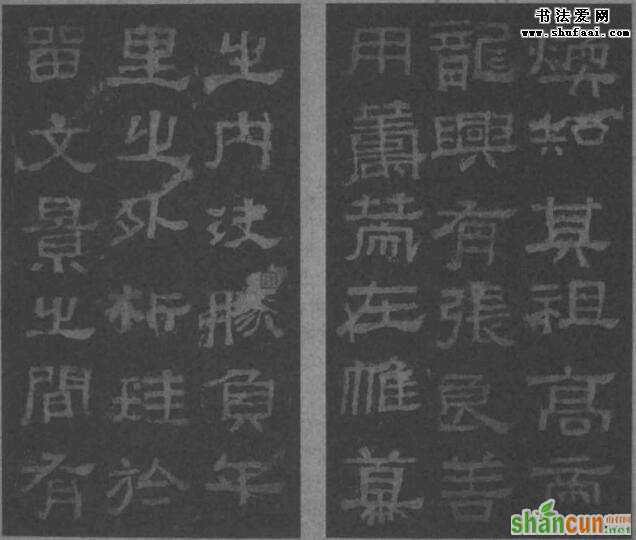 书法爱网
www.shufaai.com
煥知其祖高帝
龍興有張良善
用籌策在帷幕
之内決勝負千
里之外析珪於
留文景之間有
shancun